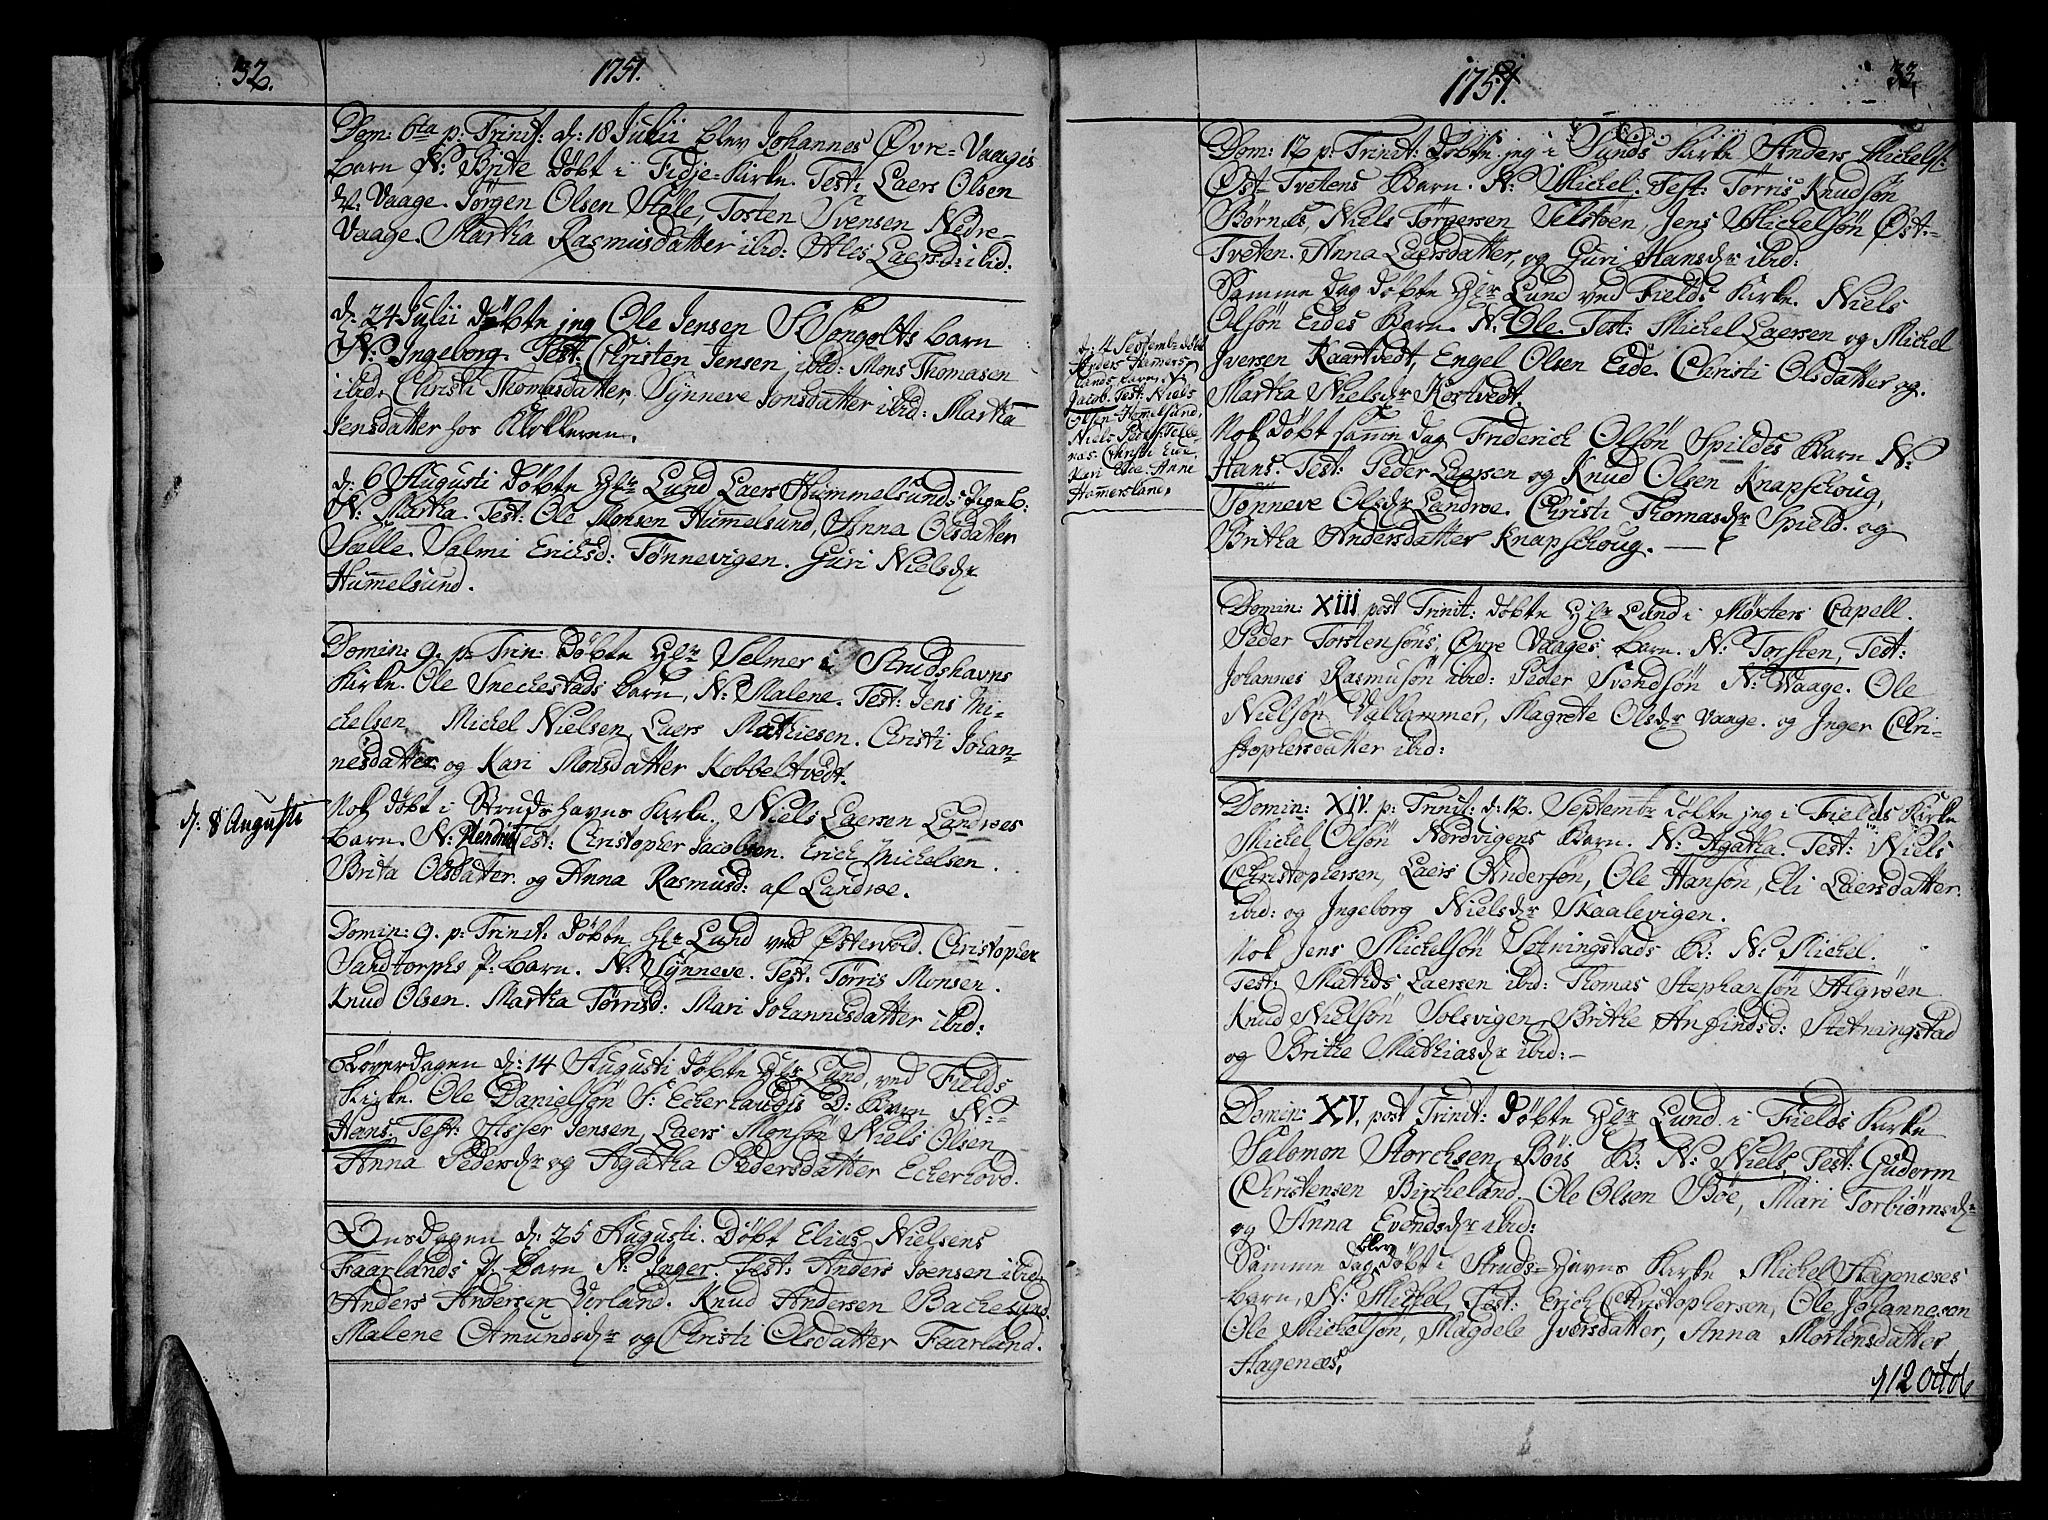 32.
1751.
Dom: 6ta p: Trinit: d: 18 Julii blev Johannes Øvre-Vaages
barn N: Brite døbt i Fidje-Kirke. Test: Laers Olsen
N: Vaage. Jørgen Olsen Stolle, Tosten Svensen Nedre-
Vaage. Martha Rasmusdatter ibid: Ales Laersd: ibid.
d: 24 Julii døbte jeg Ole Jensen S Songolts barn
N: Ingeborg. Test: Christen Jensen, ibid: Mons Thomasen
ibid, Christi Thomasdatter, Synneve Jonsdatter ibid: Martha
Jensdatter hos Klokkeren.
d: 6 Augusti døbte Hr Lund Laers Hummelsunds Pige b:
N: Martha. Test: Ole Monsen Hummelsund, Anna Olsdatter
Sælle. Salmi Ericksd: Tønnevigen. Guri Nielsdr
Hummelsund.
Domin: 9. p: Trin: Døbte Hr Selmer i Strudshavns
Kirke. Ole Snechestads barn, N: Malene. Test: Jens Mi-
chelsen, Michel Nielsen, Laers Mathiesen. Christi Johan-
nesdatter og Kari Monsdatter Kobbeltvedt.
d: 8 Augusti
Nok døbt i Strudshavns Kirke, Niels Laersen Landroes
barn. N: Hendric Test: Christopher Jacobsen. Erich Michelsen.
Brita Olsdatter og Anna Rasmusd: af Landroe.
Domin: 9. p: Trinit: Døbte Hr Lund ved Østervold. Christopher
Sandtorphs P: barn. N: Synneve. Test: Tørris Monsen.
Knud Olsen. Martha Tørrisd: Mari Johannesdatter ibid:
Løverdagen d: 14 Augusti døbte Hr Lund, ved Fields
Kirke. Ole Danielsøn S: Echerlands D: Barn N:
Hans. Test: Asser Jensen, Laers Monsøn Niels Olsen,
Anna Pedersdr og Agatha Pedersdatter Echerhovd.
Onsdagen d: 25 Augusti. Døbt Elias Nielsens
Faarlands P. Barn N: Inger. Test: Anders Joensen ibid:
Anders Andersen Vorland. Knud Andersen Bachesund
Malene Amundsdr og Christi Olsdatter Faarland.
1751.
33
d: 4 Septembr døbt
Anders Hamers-
lands barn N:
Jacob. Test: Niels
Olsen Homelsund,
Niels Peders: Telle-
næs. Christi Eide,
Kari Eide. Anne
Hamersland.
Dom: 12 p: Trinit: Døbte jeg i Sunds Kirke Anders Michels:
Øst-Tvetens Barn. N: Michel. Test: Tørris Knudsøn
Børnes, Niels Tørgersen Selstøen, Jens Michelsøn Øst-
Tveten. Anna Laersdatter, og Guri Hansdr ibid:
Samme dag døbte Hr Lund ved Fields Kirke. Niels
Olsøn Eides Barn. N: Ole. Test: Michel Laersen og Michel
Iversen Kaartvedt, Engel Olsen Eide. Christi Olsdatter og
Martha Nielsdr Kostvedt.
Nok døbt samme dag Friderich Olsøn Spildes Barn N:
Hans. Test: Peder Laersen og Knud Olsen Knapschoug,
Sønneve Olsdr Landroe. Christi Thomasdr Spield. og
Britha Andersdatter Knapschoug.
Domin: XIII post Trinit: døbte Hr Lund i Møxters Capell.
Peder Torstensøns, Øvre Vaages barn. N: Torsten, Test:
Johannes Rasmusøn ibid: Peder Svendsøn N: Waage. Ole
Nielsøn Valhammer, Magrete Olsdr Vaage. og Inger Chri-
stophersdatter ibid:
Domin: XIV. p: Trinit: d: 12. Septembr døbte jeg i Fields Kirke
Michel Olsøn Nordvigens Barn. N: Agatha. Test: Niels
Christophersen, Laers Andersøn, Ole Hansøn, Eli Laersdatter
ibid: og Ingeborg Nielsdr Skaalevigen.
Nok Jens Michelsøn Setningstads B: N: Michel.
Test: Mathis Laersen ibid: Thomas Stephansøn Algrøen
Knud Nielsøn Solsvigen, Brithe Anfindsd: Stetningstad
og Brithe Mathiasdr ibid:
Domin: XV. post Trinit: døbte Hr Lund i Fields Kirke
Salomon Storchsen Bøis B: N: Niels, Test: Gudorm
Christensen Bircheland, Ole Olsen Bøe, Mari Torbiørnsdr
og Anna Evendsdr ibid:
Samme dag blev døbt i Struds-Havns Kirke Michel Hagenæses
barn, N: Michel, Test: Erich Christophersen, Ole Johannesøn
Ole Michelsøn, Magdele Iversdatter, Anna Mortensdatter
Hagenæs,
d 12 Octob